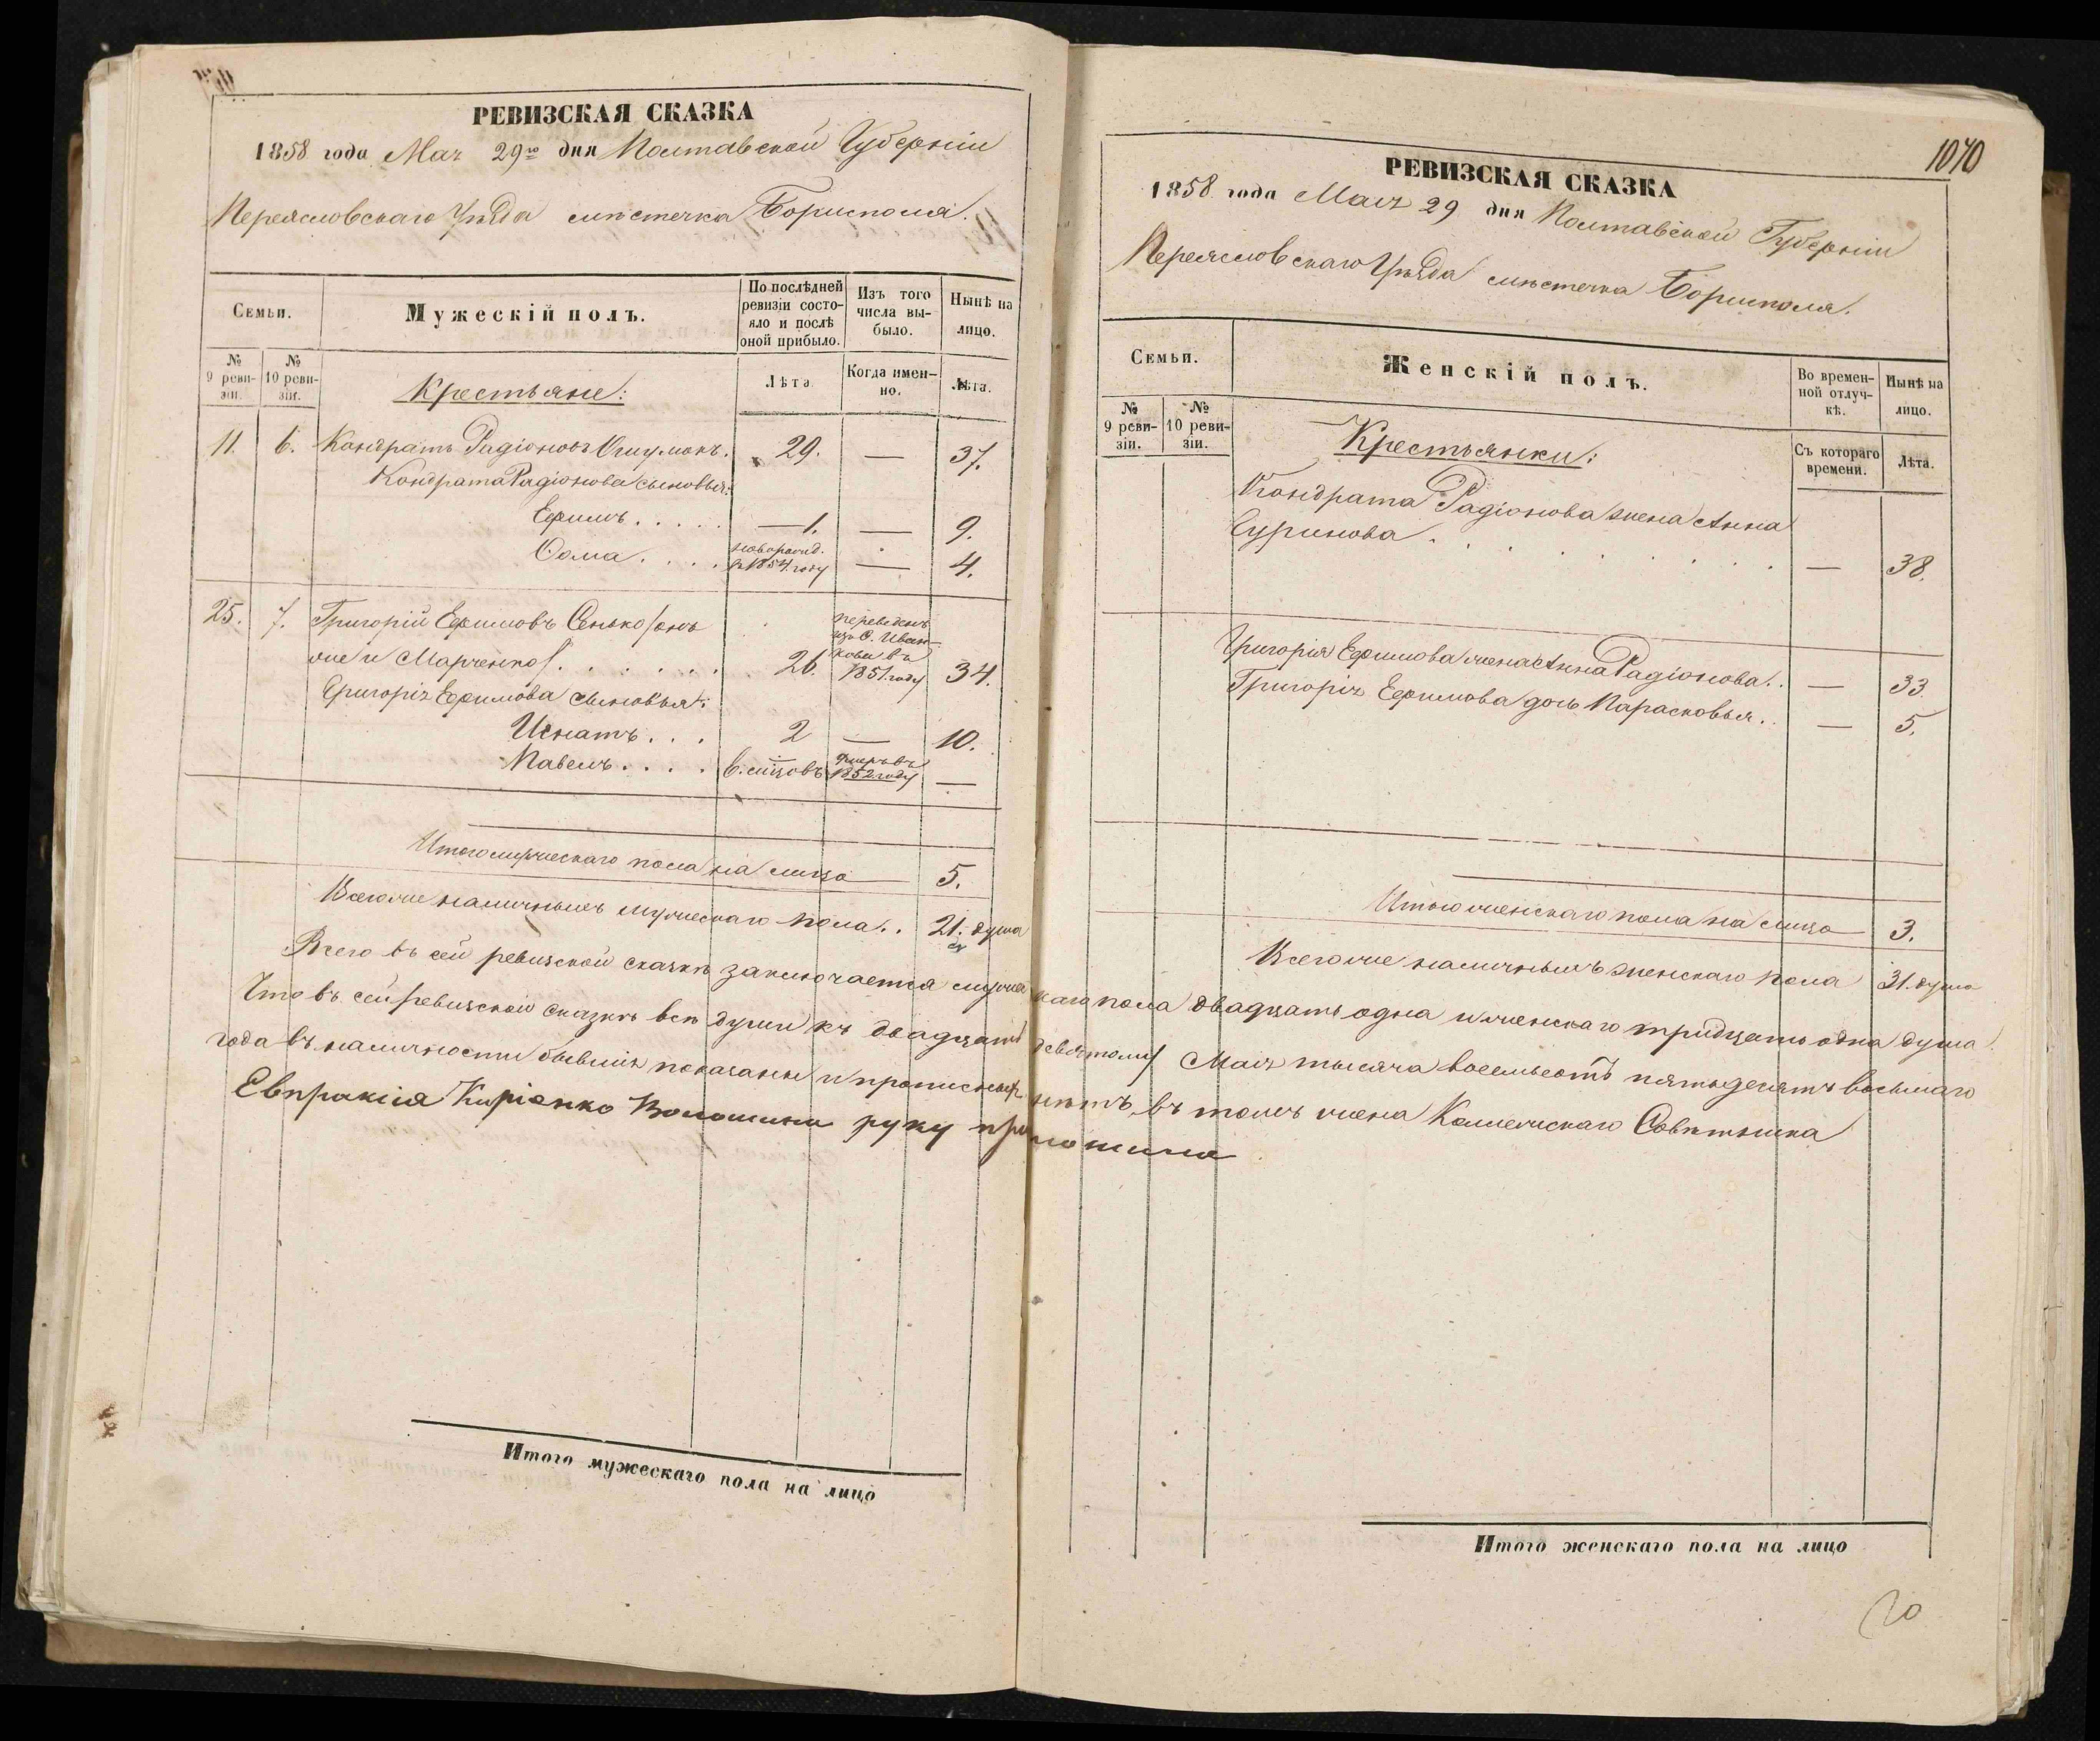 РЕВИЗСКАЯ СКАЗКА
1858 года Мая 29го дня Полтавской Губерніи
Переясловскаго Уѣзда мѣстечка Борисполя.
Семьи.
Мужескій полъ.
По послѣдней ревизіи состояло и послѣ оной прибыло.
Изъ того числа выбыло.
Нынѣ на лицо.
№ 9 ревизіи.
№ 10 ревизіи.
Крестьяне:
Лѣта
Когда именно.
Лѣта.
11. 6. Кондратъ Радіоновъ . 29. — 37.
Кондрата Радіонова сыновья:
Ефимъ . . . . . — 1. — 9.
Фома . . . . новорожд. въ 1854. году — 4.
25. 7. Григорій Ефимовъ Сенько /онъ
же и Марченко/ . . . . . . . 26. переведенъ изъ С. Иванкова въ 1851. году 34.
Григорія Ефимова сыновья:
Игнатъ . . . 2 — 10.
Павелъ . . . . 6. мѣсяцовъ умеръ въ 1852 году —
Итого мужескаго пола на лицо — 5.
Всего же наличныхъ мужескаго пола . . 21. душа
1070
РЕВИЗСКАЯ СКАЗКА
1858 года Мая 29 дня Полтавской Губерніи
Переясловскаго Уѣзда мѣстечка Борисполя.
Семьи.
Женскій полъ.
Во временной отлучкѣ.
Нынѣ на лицо.
№ 9 ревизіи.
№ 10 ревизіи.
Крестьянки:
Съ котораго времени.
Лѣта.
Кондрата Радіонова жена Анна
. . . . . . . — 38.
Григорія Ефимова жена Анна Радіонова . . — 33.
Григорія Ефимова дочь Парасковья . . — 5.
Итого женскаго пола на лицо 3.
Всего же наличныхъ женскаго пола 31. душа
Всего въ сей ревизской сказкѣ заключается мужескаго пола двадцать одна и женскаго тридцать одна душа.
Что въ сей ревизской сказкѣ всѣ души къ двадцать девятому Мая тысяча восемьсотъ пятьдесятъ восьмаго
года въ наличности бывшія показаны и прописныхъ нѣтъ, въ томъ жена Коллежскаго Совѣтника
Евпраксія Киріенко Волошина руку приложила
Итого мужескаго пола на лицо
Итого женскаго пола на лицо